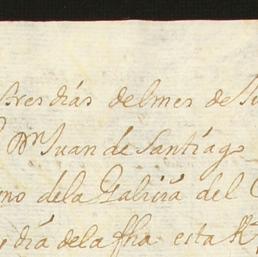 tres días del mes de
Juan de Santiago
no dela Galicia del
día dela fha esta